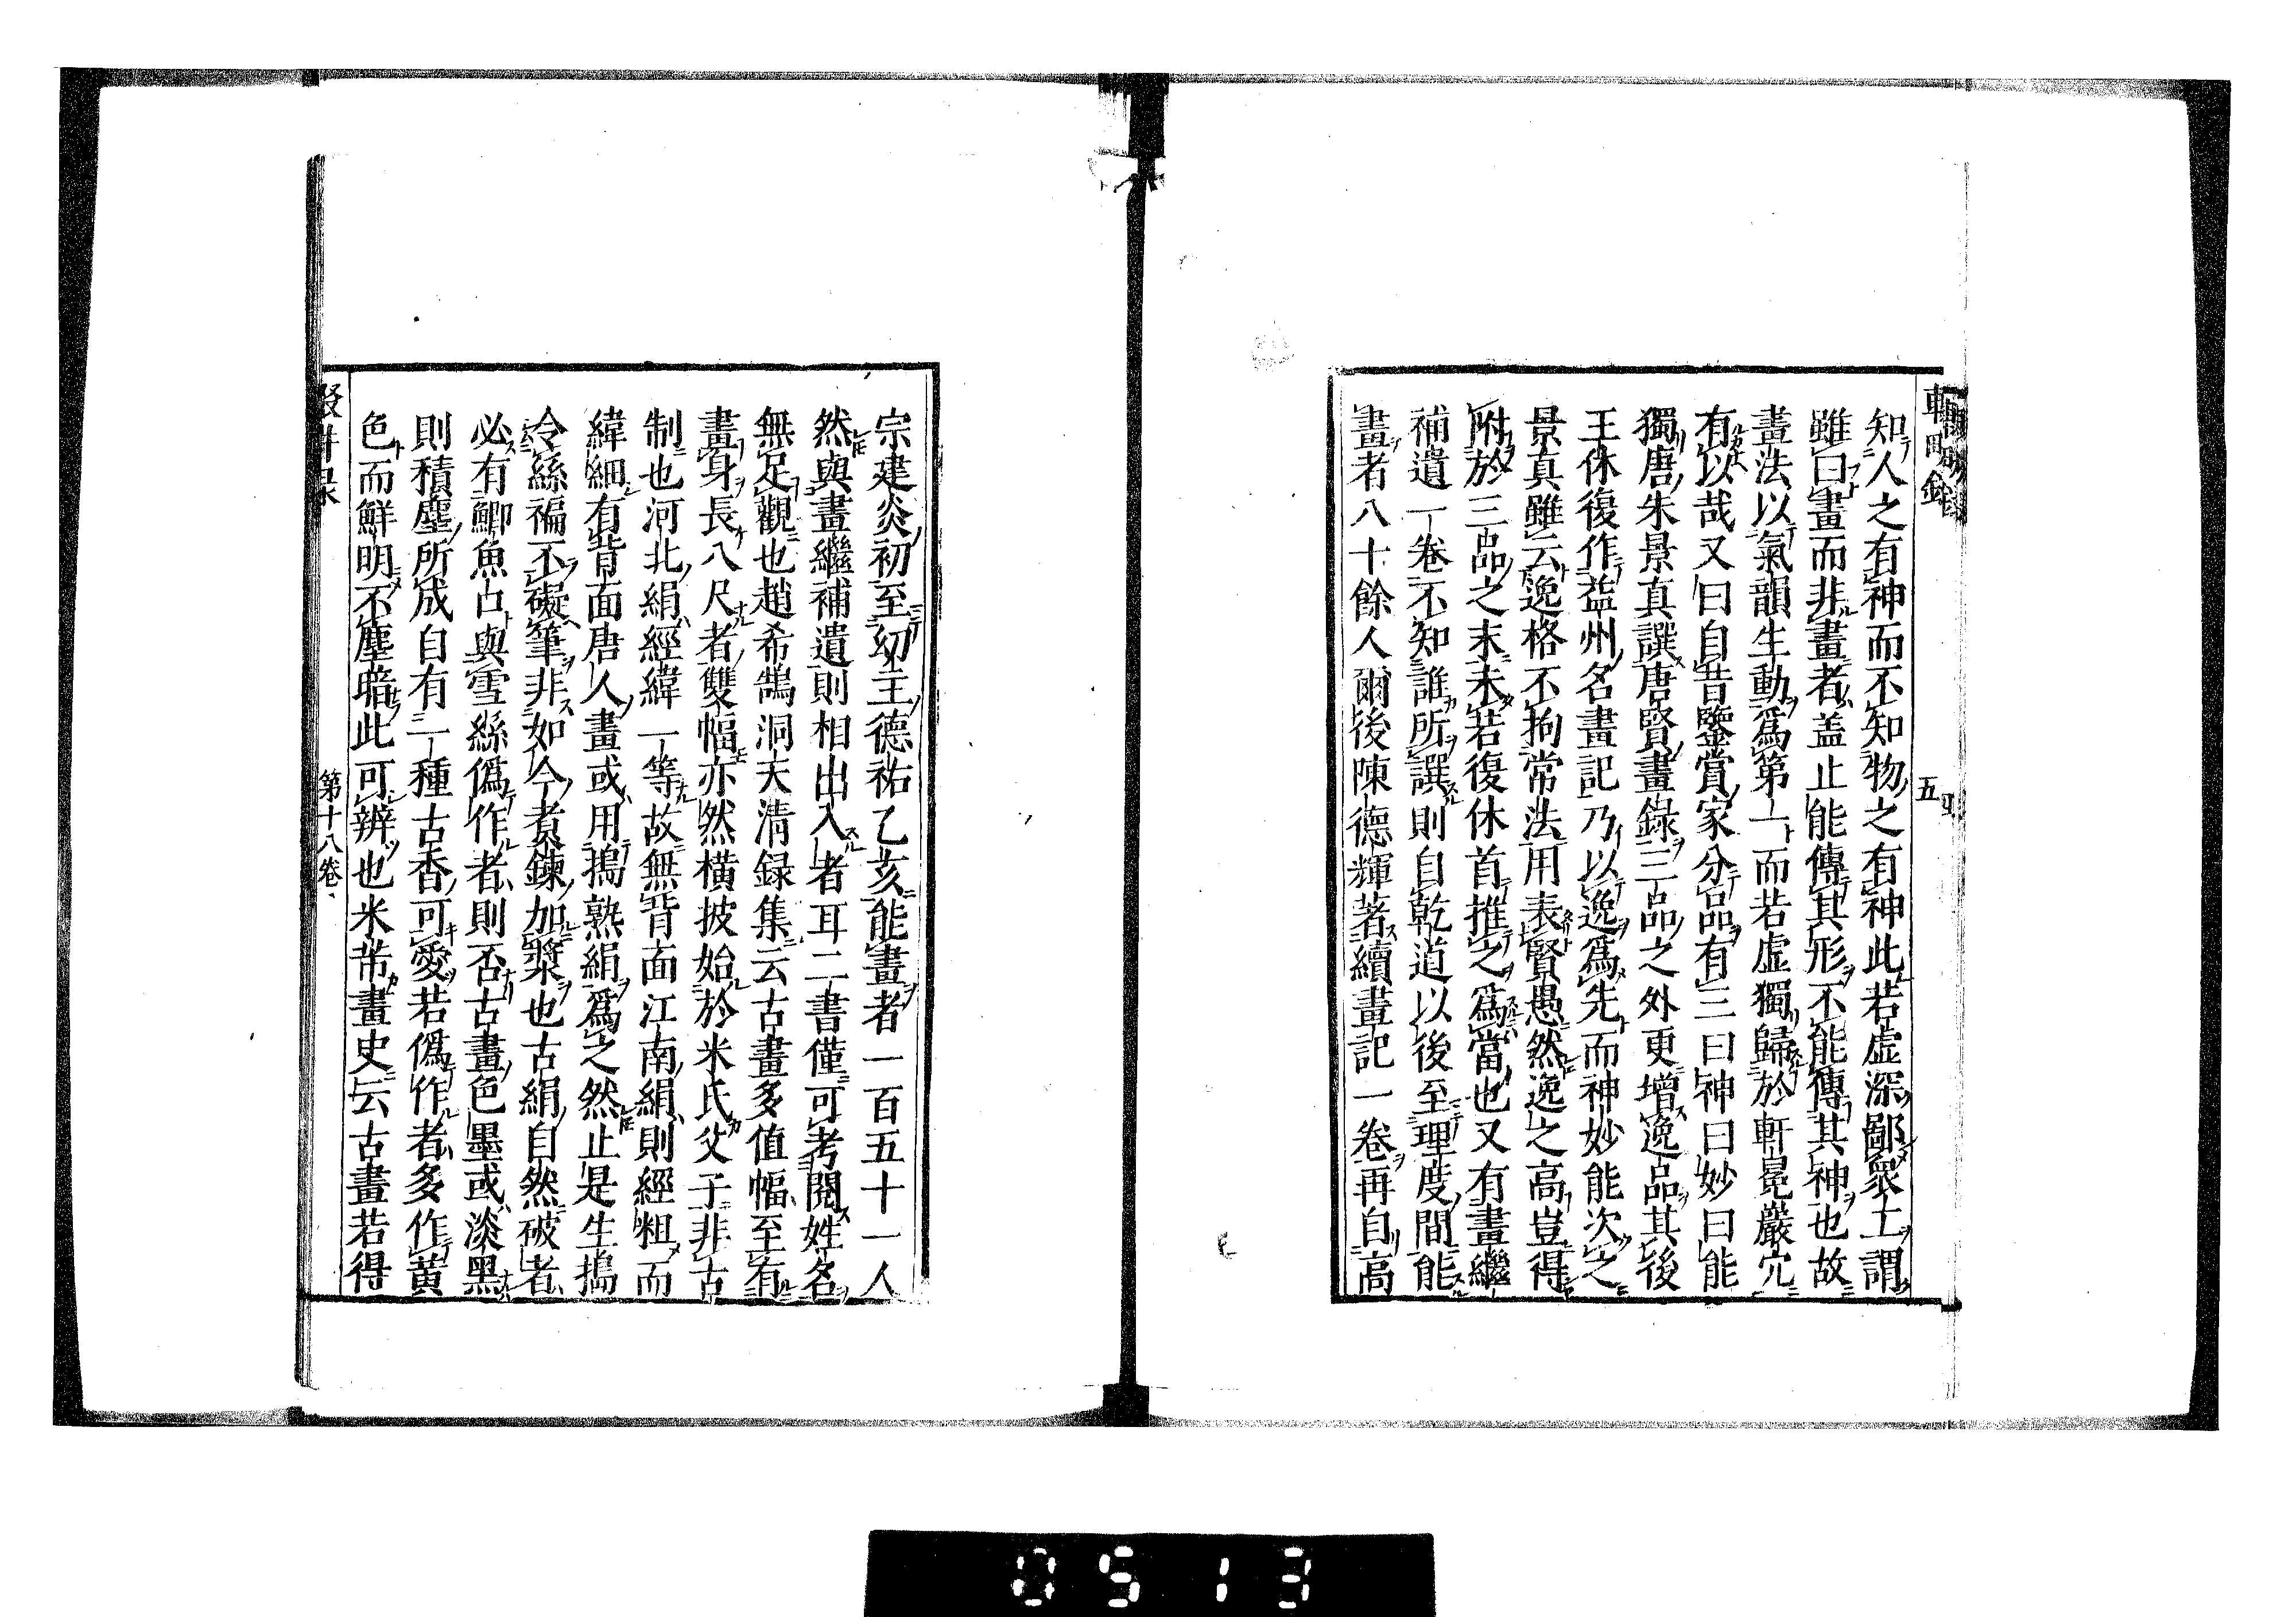 知人之有神而不知物之有神此若虛深鄙衆工謂
雖曰畫而非畫者盖止能傳其形不能傳其神也故
畫法以氣韻生動爲第一而若虛獨歸於軒冕巖穴
有以哉又曰自昔鑒賞家分品有三曰神曰妙曰能
獨唐朱景真譔唐賢畫錄三品之外更增逸品其後
王休復作益州名畫記乃以逸爲先而神妙能次之
景真雖云逸格不拘常法用表賢愚然逸之高豈得
附於三品之末未若復休首推之爲當也又有畫繼
補遺一卷不知誰所譔則自乾道以後至理度間能
畫者八十餘人爾後陳德輝著續畫記一卷再自高
五
宗建炎初至幼主德祐乙亥能畫者一百五十一人
然與畫繼補遺則相出入者耳二書僅可考閱姓名
無足觀也趙希鵠洞天清録集云古畫多值幅至有
畫身長八尺者雙幅亦然橫披始於米氏父子非古
制也河北絹經緯一等故無背面江南絹則經粗而
緯細有背面唐人畫或用搗熟絹爲之然止是生搗
令絲褊不礙筆非如今煮鍊加漿也古絹自然破者
必有鯽魚口與雪絲僞作者則否古畫色墨或淡黑
則積塵所成自有一種古香可愛若僞作者多作黄
色而鮮明不塵暗此可辨也米芾畫史云古畫若得
第十八卷
0513